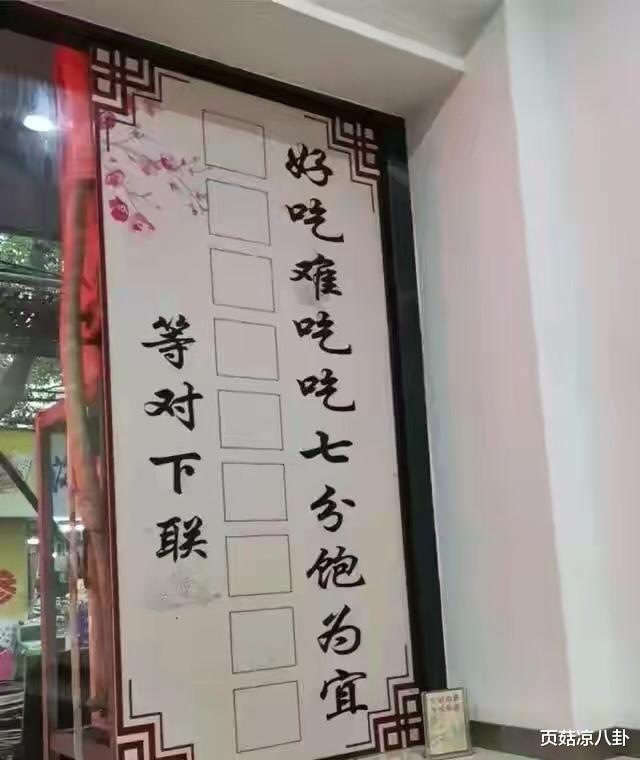 好吃难吃吃七分饱为宜
等对下联
页菇凉八卦